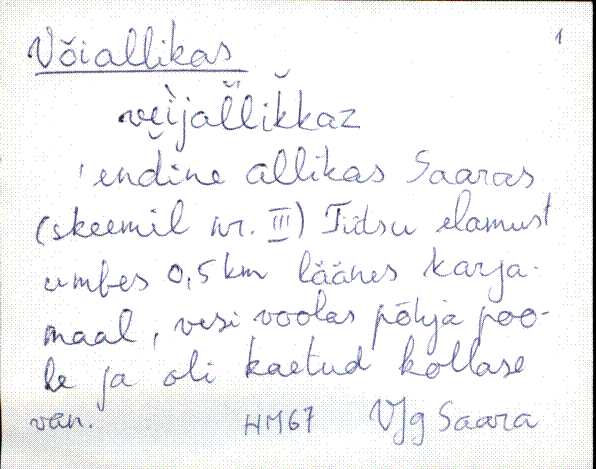 1
Võiallikas
vèijallikkaz
endine allikas Saaras
(skeemil nr. III) Tidsu elamust
umbes 0,5 km läänes karja-
maal, vesi voolas põhja poo-
le ja oli kaetud kollase
van. HM67 VJg Saara